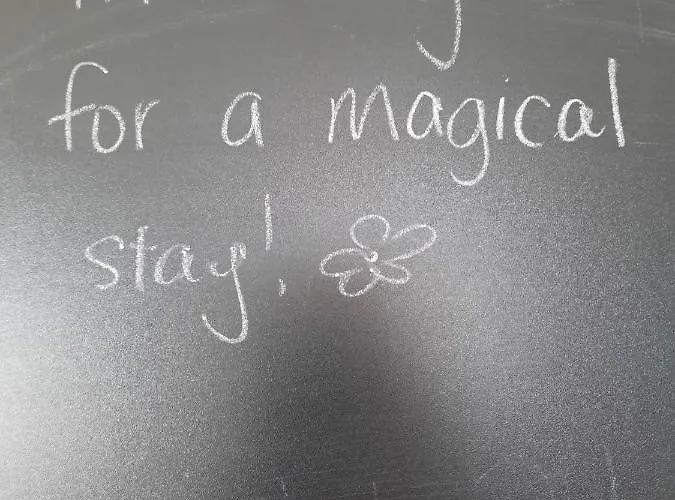 for a magical
stay!